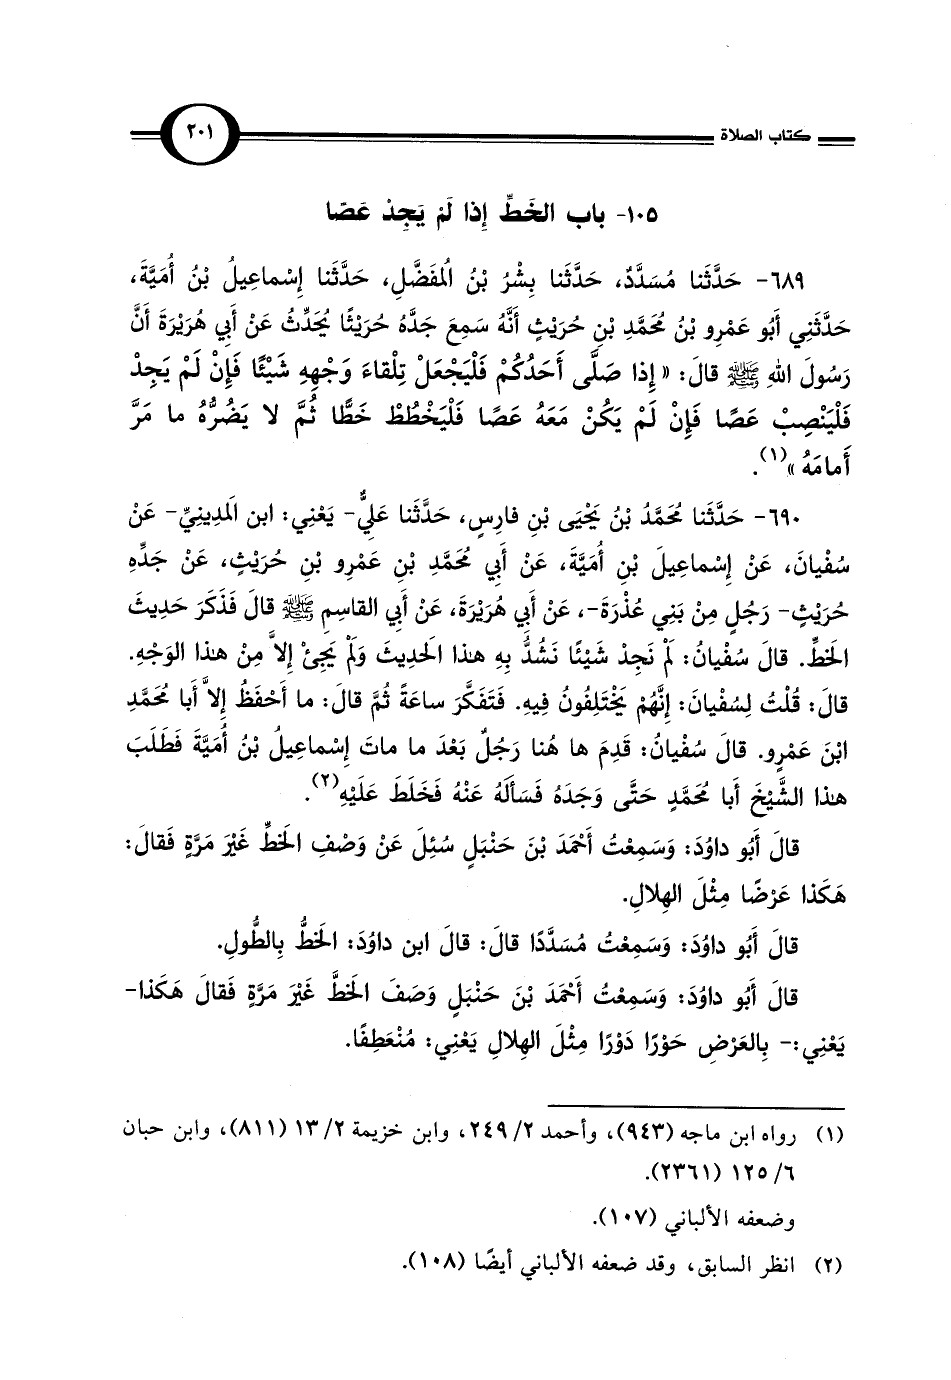 كتاب الصلاة
٢٠١
١٠٥- باب الخَطِّ إِذا لَمْ يَجِدْ عَصًا
٦٨٩- حَدَّثَنا مُسَدَّدٌ، حَدَّثَنا بِشْرُ بْنُ المُفَضَّلِ، حَدَّثَنا إِسْماعِيلُ بْنُ أُمَيَّةَ،
حَدَّثَنِي أَبُو عَمْرِو بْنُ مُحَمَّدِ بْنِ حُرَيْثٍ أَنَّهُ سَمِعَ جَدَّهُ حُرَيْثًا يُحَدِّثُ عَنْ أَبِي هُرَيْرَةَ أَنَّ
رَسُولَ اللهِ ﷺ قالَ: « إِذا صَلَّى أَحَدُكُمْ فَلْيَجْعَلْ تِلْقاءَ وَجْهِهِ شَيْئًا فَإِنْ لَمْ يَجِدْ
فَلْيَنْصِبْ عَصًا فَإِنْ لَمْ يَكُنْ مَعَهُ عَصًا فَلْيَخْطُطْ خَطًّا ثُمَّ لا يَضُرُّهُ ما مَرَّ
أَمامَهُ »(١).
٦٩٠- حَدَّثَنا مُحَمَّدُ بْنُ يَحْيَى بْنِ فارِسٍ، حَدَّثَنا عَلِيٌّ- يَعْنِي: ابن المَدِينِيِّ- عَنْ
سُفْيانَ، عَنْ إِسْماعِيلَ بْنِ أُمَيَّةَ، عَنْ أَبِي مُحَمَّدِ بْنِ عَمْرِو بْنِ حُرَيْثٍ، عَنْ جَدِّهِ
حُرَيْثٍ- رَجُلٍ مِنْ بَنِي عُذْرَةَ-، عَنْ أَبِي هُرَيْرَةَ، عَنْ أَبِي القاسِمِ ﷺ قالَ فَذَكَرَ حَدِيثَ
الخَطِّ. قالَ سُفْيانُ: لَمْ نَجِدْ شَيْئًا نَشُدُّ بِهِ هذا الحَدِيثَ وَلَمْ يَجِئْ إِلاَّ مِنْ هذا الوَجْهِ.
قالَ: قُلْتُ لِسُفْيانَ: إِنَّهُمْ يَخْتَلِفُونَ فِيهِ. فَتَفَكَّرَ ساعَةً ثُمَّ قالَ: ما أَحْفَظُ إِلاَّ أَبا مُحَمَّدِ
ابْنَ عَمْرٍو. قالَ سُفْيانُ: قَدِمَ ها هُنا رَجُلٌ بَعْدَ ما ماتَ إِسْماعِيلُ بْنُ أُمَيَّةَ فَطَلَبَ
هذا الشَّيْخَ أَبا مُحَمَّدٍ حَتَّى وَجَدَهُ فَسَأَلَهُ عَنْهُ فَخَلَطَ عَلَيْهِ(٢).
قالَ أَبُو داوُدَ: وَسَمِعْتُ أَحْمَدَ بْنَ حَنْبَلٍ سُئِلَ عَنْ وَصْفِ الخَطِّ غَيْرَ مَرَّةٍ فَقالَ:
هَكَذا عَرْضًا مِثْلَ الهِلالِ.
قالَ أَبُو داوُدَ: وَسَمِعْتُ مُسَدَّدًا قالَ: قالَ ابن داوُدَ: الخَطُّ بِالطُّولِ.
قالَ أَبُو داوُدَ: وَسَمِعْتُ أَحْمَدَ بْنَ حَنْبَلٍ وَصَفَ الخَطَّ غَيْرَ مَرَّةٍ فَقالَ هَكَذا-
يَعْنِي:- بِالعَرْضِ حَوْرًا دَوْرًا مِثْلَ الهِلالِ يَعْنِي: مُنْعَطِفًا.
(١) رواه ابن ماجه (٩٤٣)، وأحمد ٢/ ٢٤٩، وابن خزيمة ٢/ ١٣ (٨١١)، وابن حبان
٦/ ١٢٥ (٢٣٦١).
وضعفه الألباني (١٠٧).
(٢) انظر السابق، وقد ضعفه الألباني أيضًا (١٠٨).